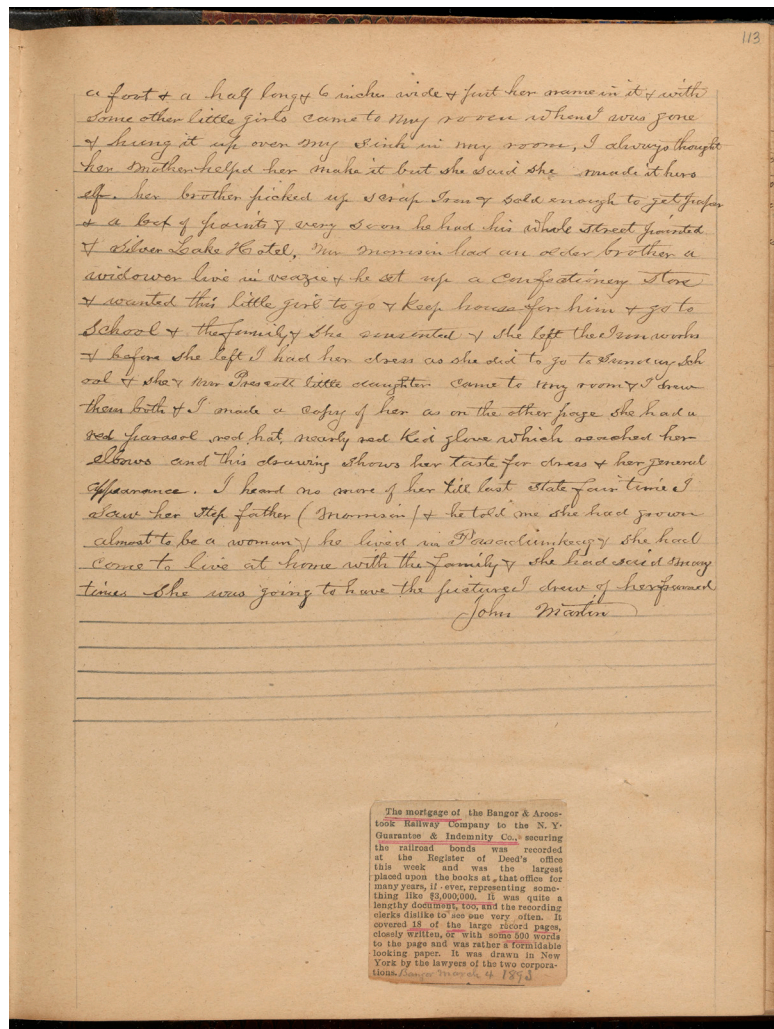 113
a foot & a half long & 6 inches wide & put her name in it & with
some other little girls came to my room when I was gone
& hung it up over my sink in my room, I always thought
her Mother helped her make it but she said she made it hers
elf. her brother picked up scrap Iron & sold enough to get paper
& a box of paints & very soon he had his whole street painted
& Silver Lake Hotel, Mr Morrison had an older brother a
widower live in veazie & he set up a confectionery store
& wanted this little girl to go & keep house for him & go to
school & the family & she consented & she left the Iron works
& before she left I had her dress as she did to go to Sunday Sch
ool & she & Mr Prescott little daughter came to my room & I drew
them both & I made a copy of her as on the other page she had a
red parasol red hat, nearly red Kid glove which reached her
elbows and this drawing shows her taste for dress & her general
appearance. I heard no more of her till last state fair time I
saw her step father (Morrison) & he told me she had grown
almost to be a woman & he lived in Passadumkeag & she had
come to live at home with the family & she had said many
times she was going to have the picture I drew of her framed
John Martin
The mortgage of the Bangor & Aroos-
took Railway Company to the N. Y.
Guarantee & Indemnity Co., securing
the railroad bonds was recorded
at the Register of Deed's office
this week and was the largest
placed upon the books at that office for
many years, if ever, representing some-
thing like $3,000,000. It was quite a
lengthy document, too, and the recording
clerks dislike to see one very often. It
covered 18 of the large record pages,
closely written, or with some 590 words
to the page and was rather a formidable
looking paper. It was drawn in New
York by the lawyers of the two corpora-
tions. Bangor March 4 1893